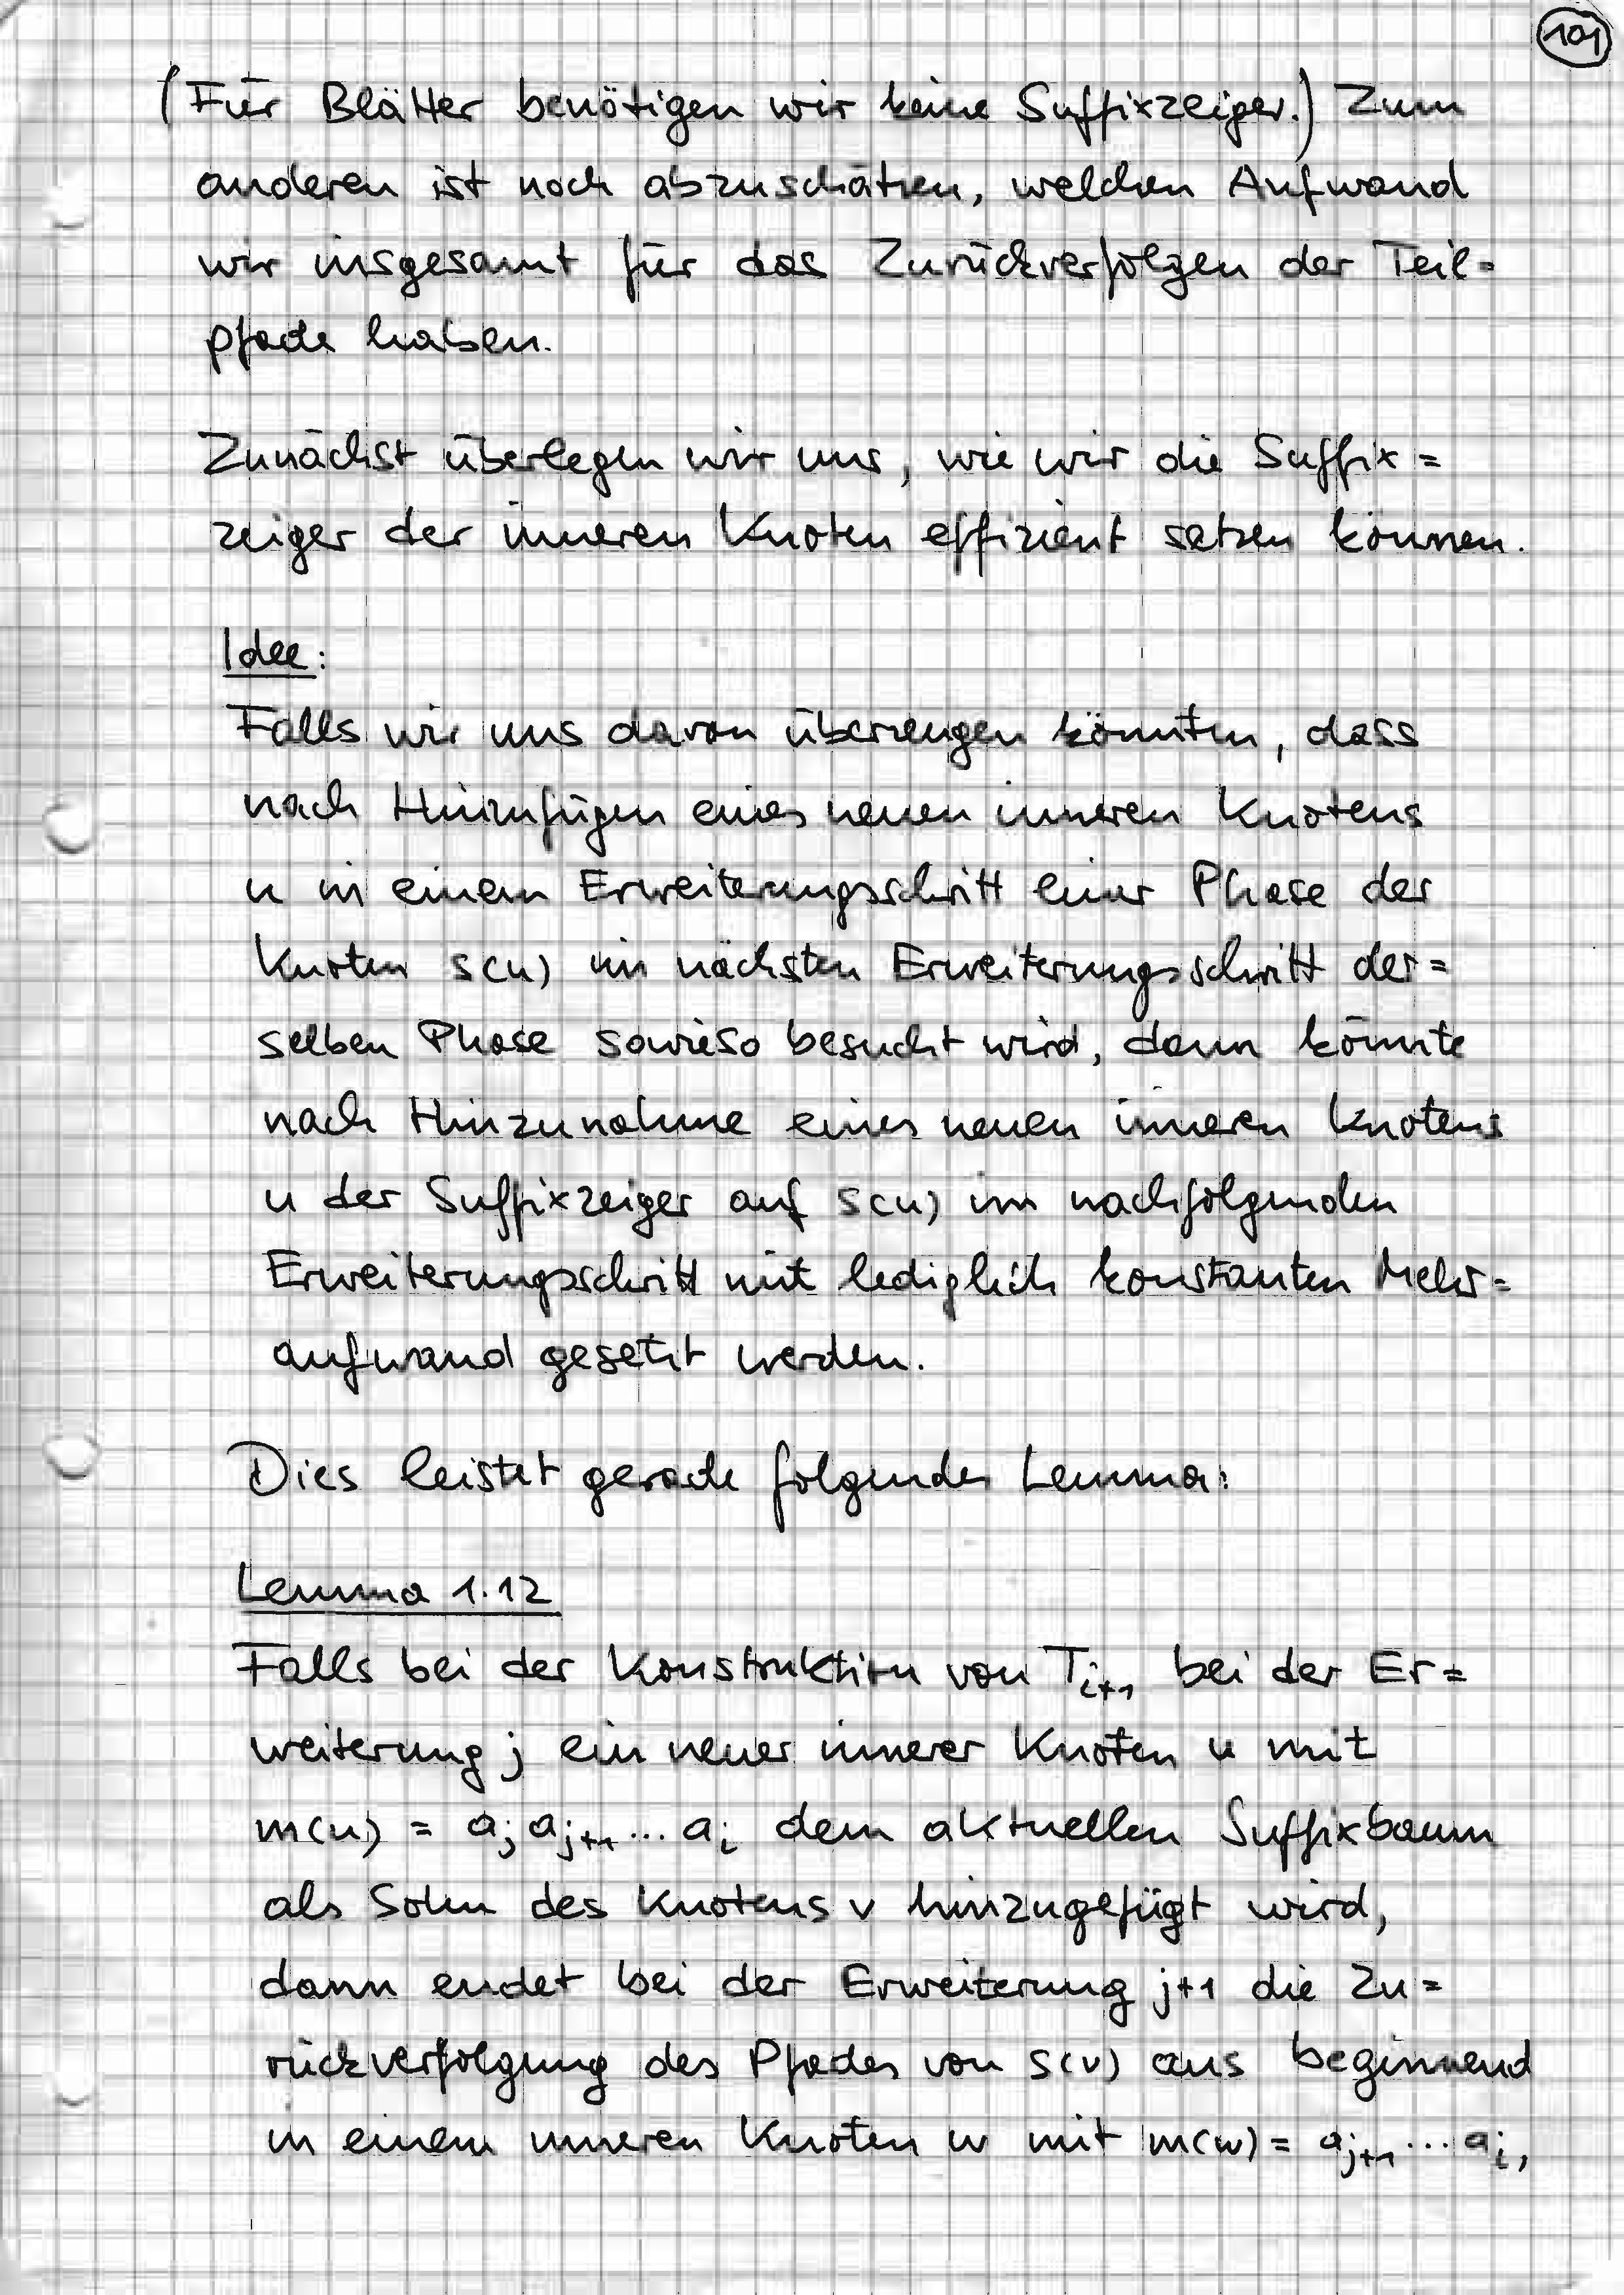 101
(Für Blätter benötigen wir keine Suffixzeiger.) Zum
anderen ist noch abzuschätzen, welchen Aufwand
wir insgesamt für das Zurückverfolgen der Teil=
pfade haben.
Zunächst überlegen wir uns, wie wir die Suffix=
zeiger der inneren Knoten effizient setzen können.
Idee:
Falls wir uns davon überzeugen könnten, dass
nach Hinzufügen eines neuen inneren Knotens
u in einem Erweiterungsschritt einer Phase der
Knoten s(u) im nächsten Erweiterungsschritt der=
selben Phase sowieso besucht wird, dann könnte
nach Hinzunahme eines neuen inneren Knotens
u der Suffixzeiger auf s(u) im nachfolgenden
Erweiterungsschritt mit lediglich konstanten Mehr=
aufwand gesetzt werden.
Dies leistet gerade folgendes Lemma:
Lemma 1.12
Falls bei der Konstruktion von T_{i+1} bei der Er=
weiterung j ein neuer innerer Knoten u mit
m(u) = a_j a_{j+1} ... a_i dem aktuellen Suffixbaum
als Sohn des Knotens v hinzugefügt wird,
dann endet bei der Erweiterung j+1 die Zu=
rückverfolgung des Pfades von s(v) aus beginnend
in einem inneren Knoten w mit m(w) = a_{j+1} ... a_i,